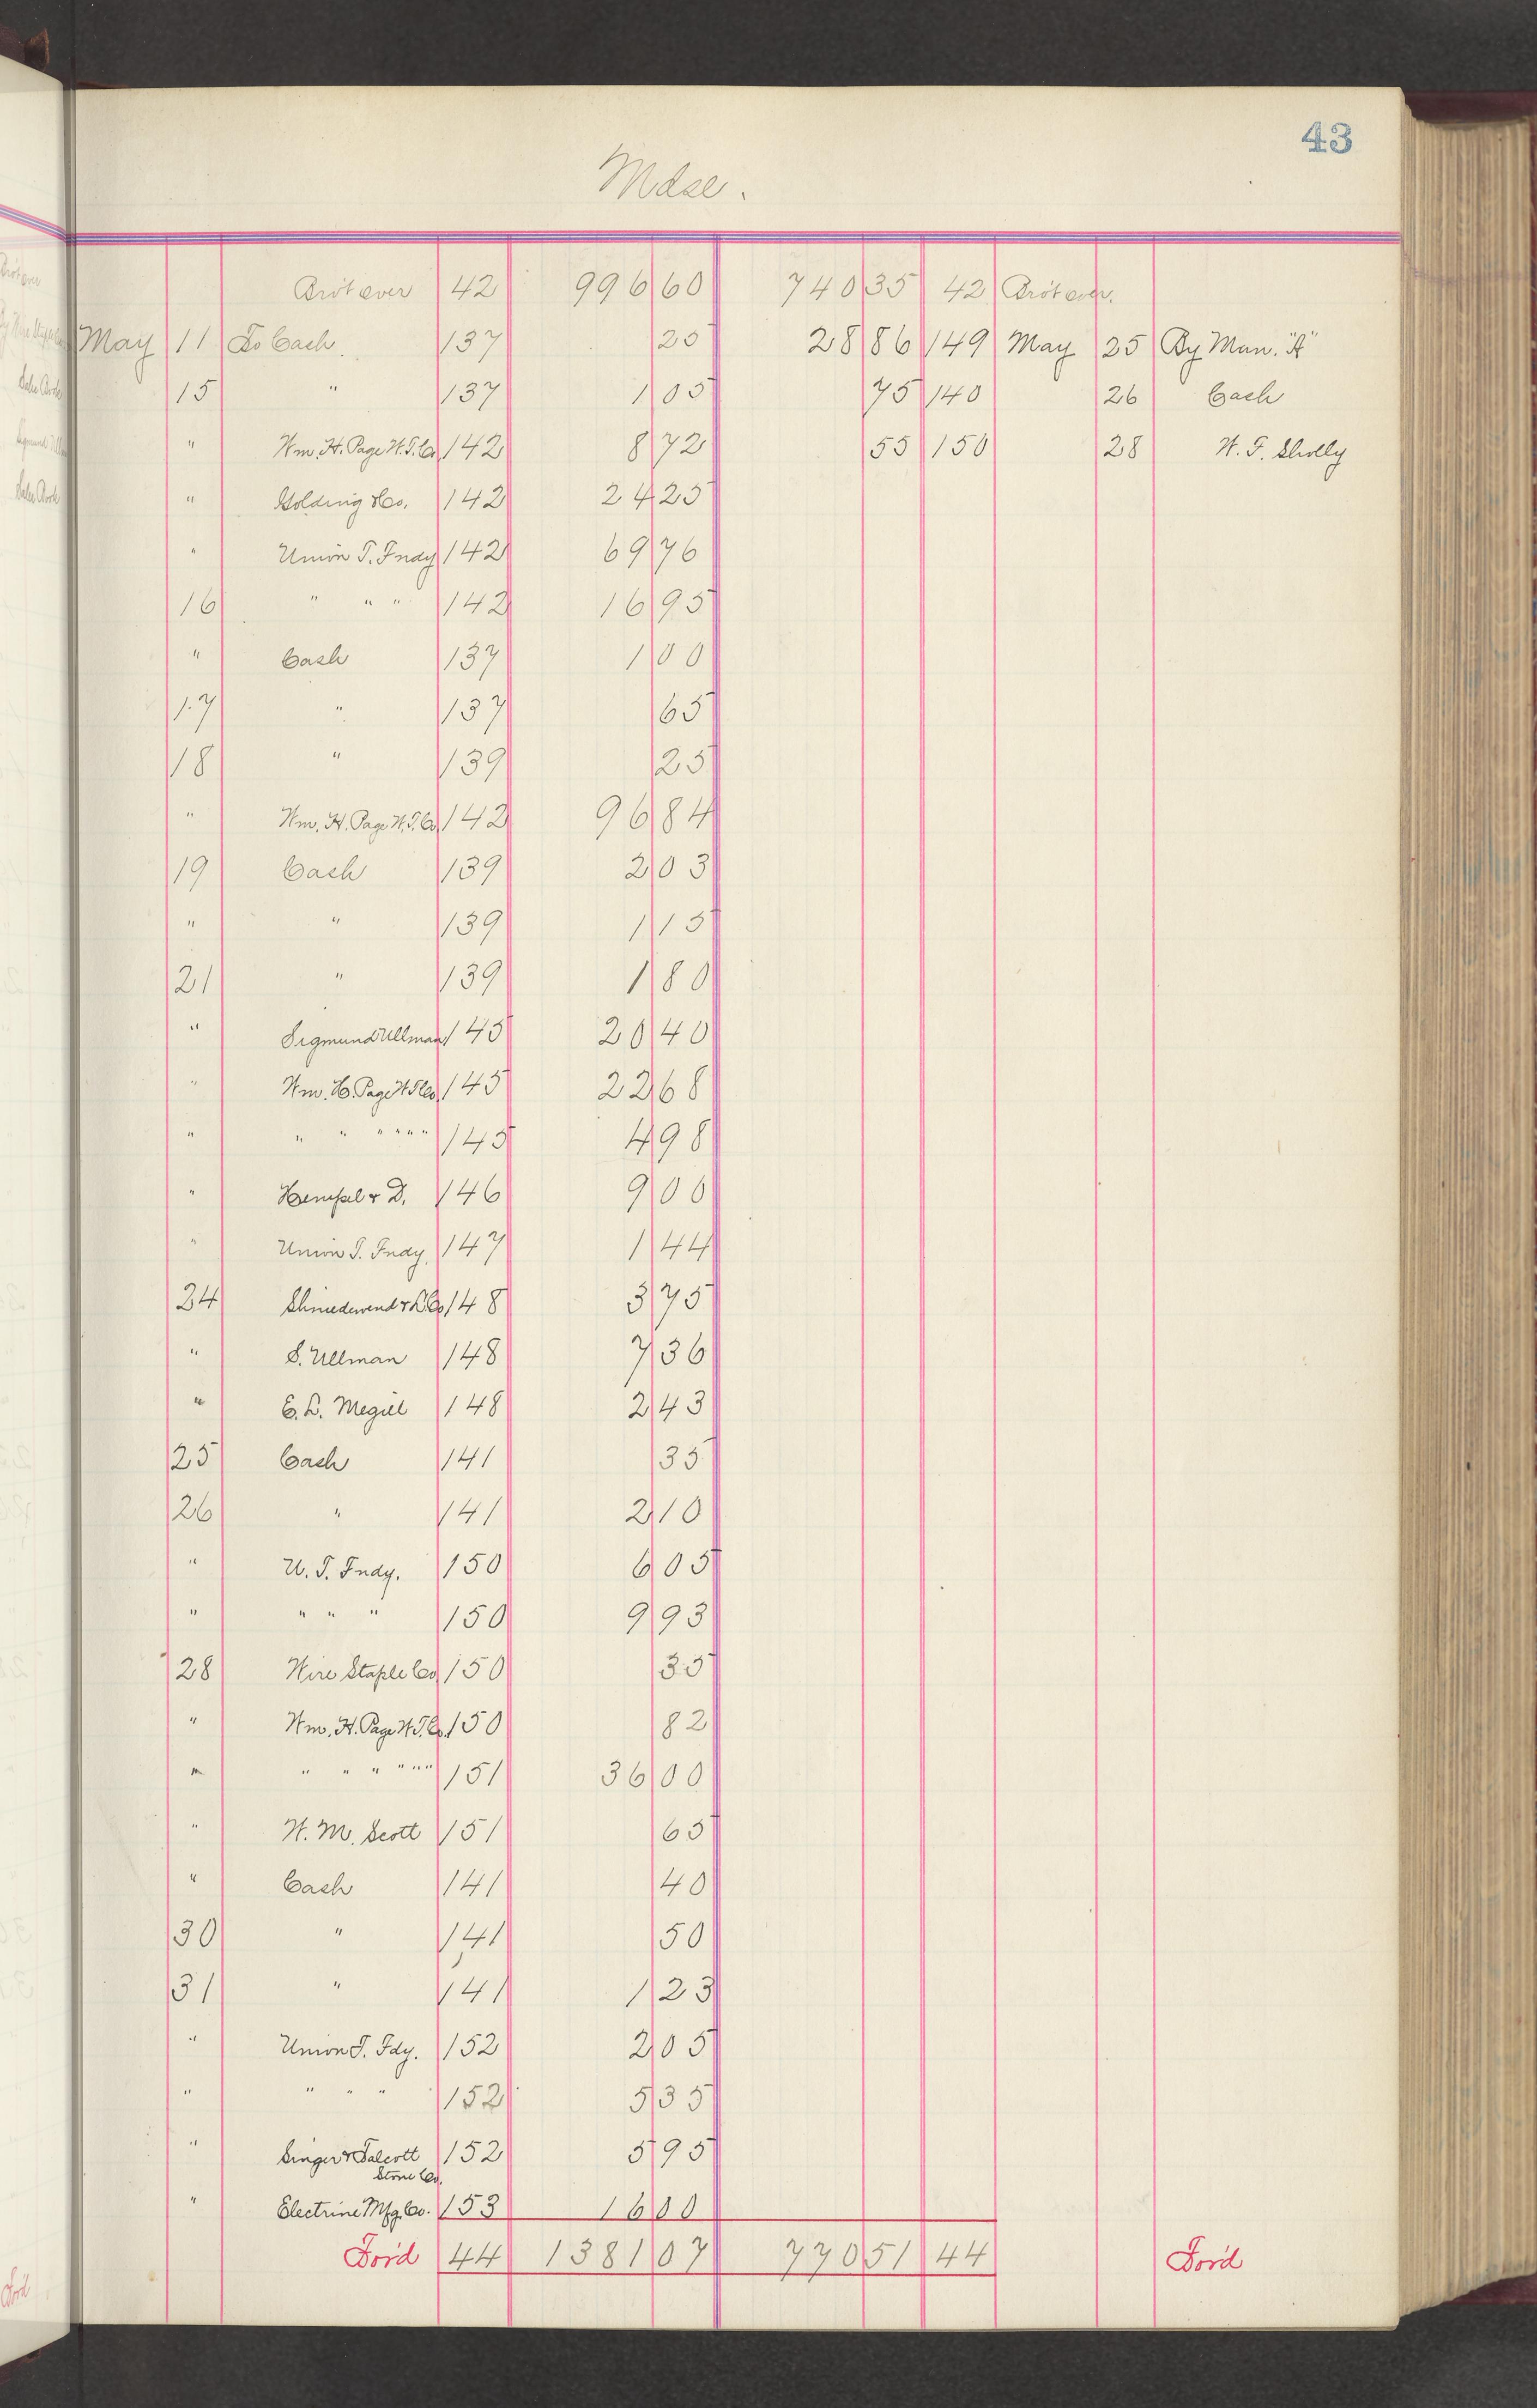 43
Mdse.
Bro't over 42 996 60 740 35 42 Bro't over.
May 11 To Cash 137 25 28 86 149 May 25 By Man. "A"
15 " 137 1 05 75 140 26 Cash
" Wm. H. Page W.T.Co 142 8 72 55 150 28 W. F. Sholly
" Golding & Co. 142 24 25
" Union T. Fndy 142 69 76
16 " " " 142 16 95
" Cash 137 1 00
17 " 137 65
18 " 139 25
" Wm. H. Page W.T.Co 142 96 84
19 Cash 139 2 03
" " 139 1 15
21 " 139 1 80
" Sigmund Ullman 145 20 40
" Wm. H. Page W T Co. 145 22 68
" " " " " " " 145 4 98
" Hempel & D. 146 9 00
" Union T. Fndy. 147 1 44
24 Shniedewend & L. Co 148 3 75
" S. Ullman 148 7 36
" E. L. Megill 148 2 43
25 Cash 141 35
26 " 141 2 10
" U. T. Fndy. 150 6 05
" " " " 150 9 93
28 Wire Staple Co 150 35
" Wm. H. Page W.T.Co. 150 82
" " " " " " " 151 36 00
" W. M. Scott 151 65
" Cash 141 40
30 " 141 50
31 " 141 1 23
" Union T. Fdy. 152 2 05
" " " " 152 5 35
" Singer & Talcott 152 5 95
Stone Co.
" Electrine Mfg. Co. 153 16 00
For'd 44 1381 07 770 51 44 For'd